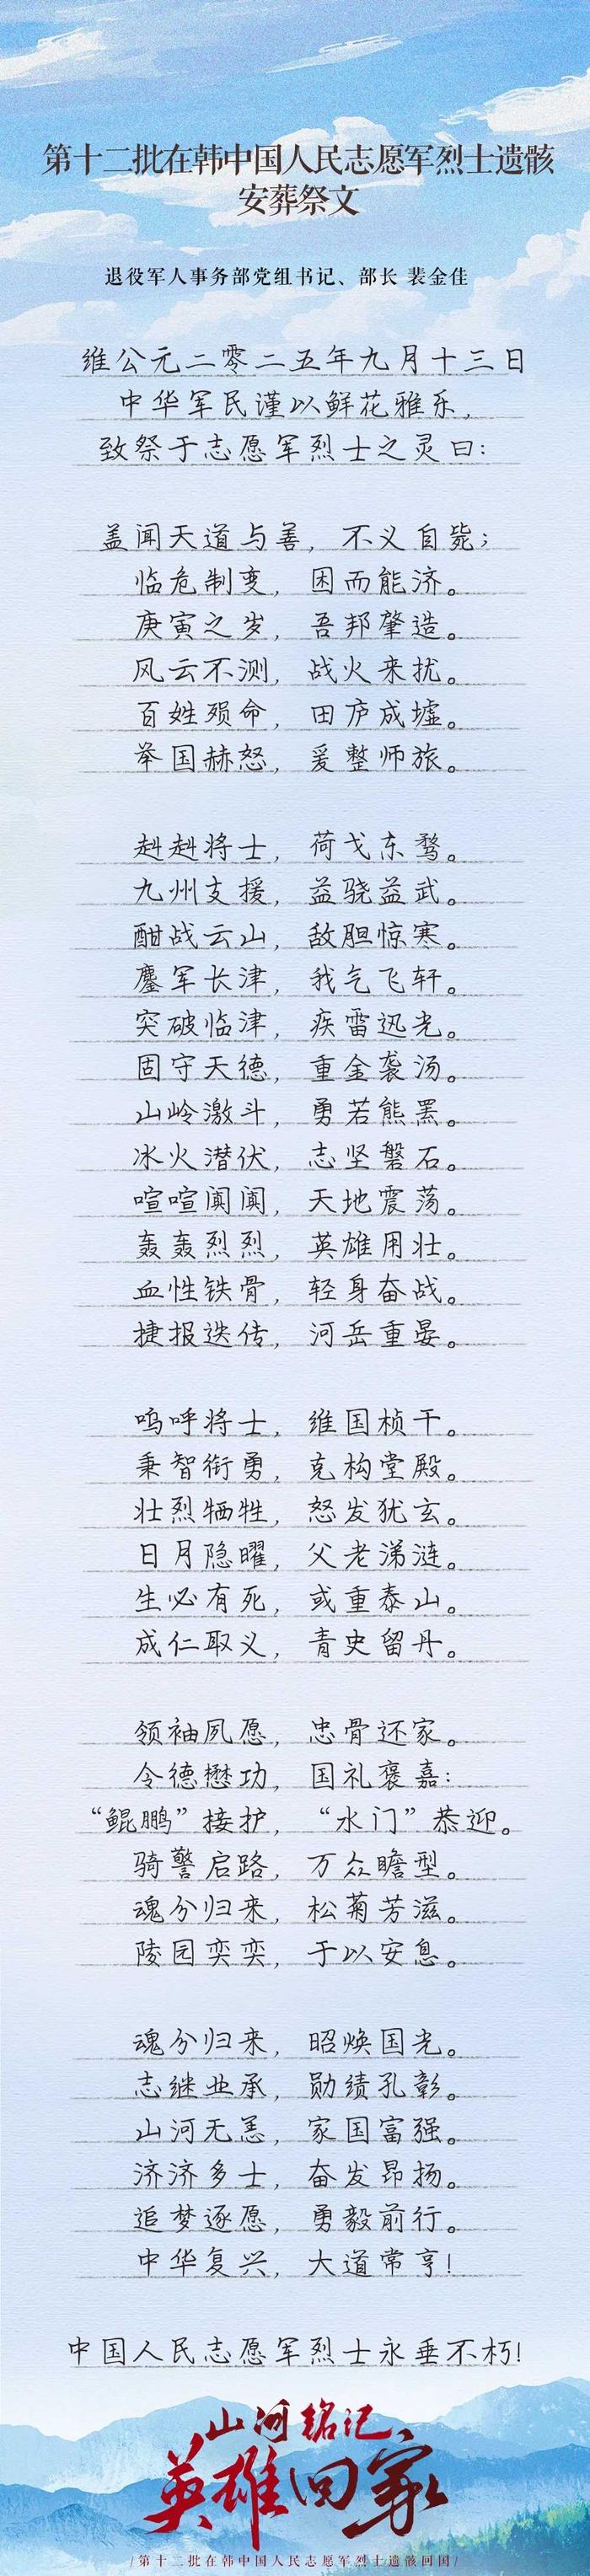 第十二批在韩中国人民志愿军烈士遗骸
安葬祭文
退役军人事务部党组书记、部长 裴金佳
维公元二零二五年九月十三日
中华军民谨以鲜花雅乐，
致祭于志愿军烈士之灵曰：
盖闻天道与善，不义自毙；
临危制变，困而能济。
庚寅之岁，吾邦肇造。
风云不测，战火来扰。
百姓殒命，田庐成墟。
举国赫怒，爰整师旅。
赳赳将士，荷戈东鹜。
九州支援，益骁益武。
酣战云山，敌胆惊寒。
鏖军长津，我气飞轩。
突破临津，疾雷迅光。
固守天德，重金袭汤。
山岭激斗，勇若熊罴。
冰火潜伏，志坚磐石。
喧喧阗阗，天地震荡。
轰轰烈烈，英雄用壮。
血性铁骨，轻身奋战。
捷报迭传，河岳重晏。
呜呼将士，维国桢干。
秉智衔勇，克构堂殿。
壮烈牺牲，怒发犹玄。
日月隐曜，父老涕涟。
生必有死，或重泰山。
成仁取义，青史留丹。
领袖夙愿，忠骨还家。
令德懋功，国礼褒嘉：
“鲲鹏”接护，“水门”恭迎。
骑警启路，万众瞻型。
魂兮归来，松菊芳滋。
陵园奕奕，于以安息。
魂兮归来，昭焕国光。
志继业承，勋绩孔彰。
山河无恙，家国富强。
济济多士，奋发昂扬。
追梦逐愿，勇毅前行。
中华复兴，大道常亨！
中国人民志愿军烈士永垂不朽！
山河铭记
英雄回家
/第十二批在韩中国人民志愿军烈士遗骸回国/